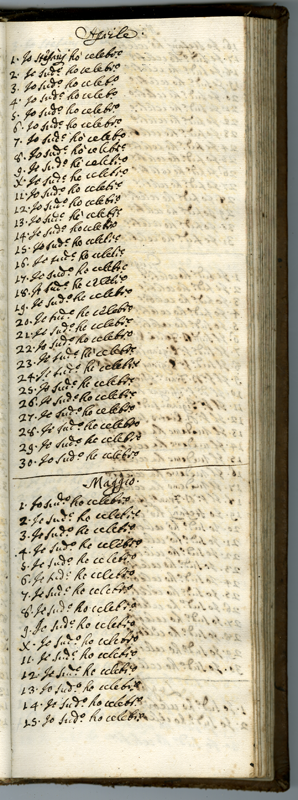 Aprile.
1. Io ho celebro
2. Io sud.º ho celebro
3. Io sud.º ho celebro
4. Io sud.º ho celebro
5. Io sud.º ho celebro
6. Io sud.º ho celebro
7. Io sud.º ho celebro
8. Io sud.º ho celebro
9. Io sud.º ho celebro
X. Io sud.º ho celebro
11. Io sud.º ho celebro
12. Io sud.º ho celebro
13. Io sud.º ho celebro
14. Io sud.º ho celebro
15. Io sud.º ho celebro
16. Io sud.º ho celebro
17. Io sud.º ho celebro
18. Io sud.º ho celebro
19. Io sud.º ho celebro
20. Io sud.º ho celebro
21. Io sud.º ho celebro
22. Io sud.º ho celebro
23. Io sud.º ho celebro
24. Io sud.º ho celebro
25. Io sud.º ho celebro
26. Io sud.º ho celebro
27. Io sud.º ho celebro
28. Io sud.º ho celebro
29. Io sud.º ho celebro
30. Io sud.º ho celebro
Maggio.
1. Io sud.º ho celebro
2. Io sud.º ho celebro
3. Io sud.º ho celebro
4. Io sud.º ho celebro
5. Io sud.º ho celebro
6. Io sud.º ho celebro
7. Io sud.º ho celebro
8. Io sud.º ho celebro
9. Io sud.º ho celebro
X. Io sud.º ho celebro
11. Io sud.º ho celebro
12. Io sud.º ho celebro
13. Io sud.º ho celebro
14. Io sud.º ho celebro
15. Io sud.º ho celebro